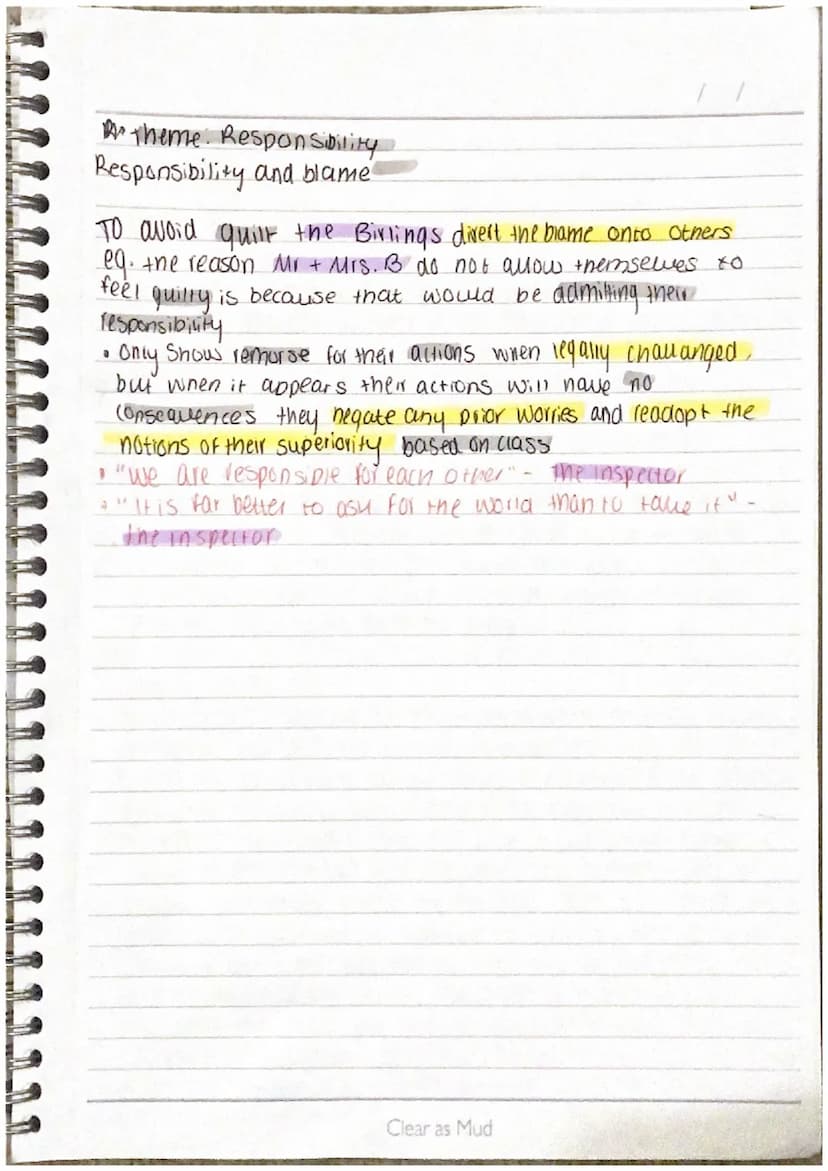 / /
Theme: Responsibility
Responsibility and blame
To avoid guilt the Birlings divert the blame onto others
eg. the reason Mr + Mrs. B do not allow themselves to
feel guilty is because that would be admitting their
responsibility
• Only show remorse for their actions when legally challanged,
but when it appears their actions will have no
consequences they negate any prior worries and readopt the
notions of their superiority based on class
• "we are responsible for each other" - the inspector
• "It is far better to ask for the world than to take it" -
the inspector
Clear as Mud